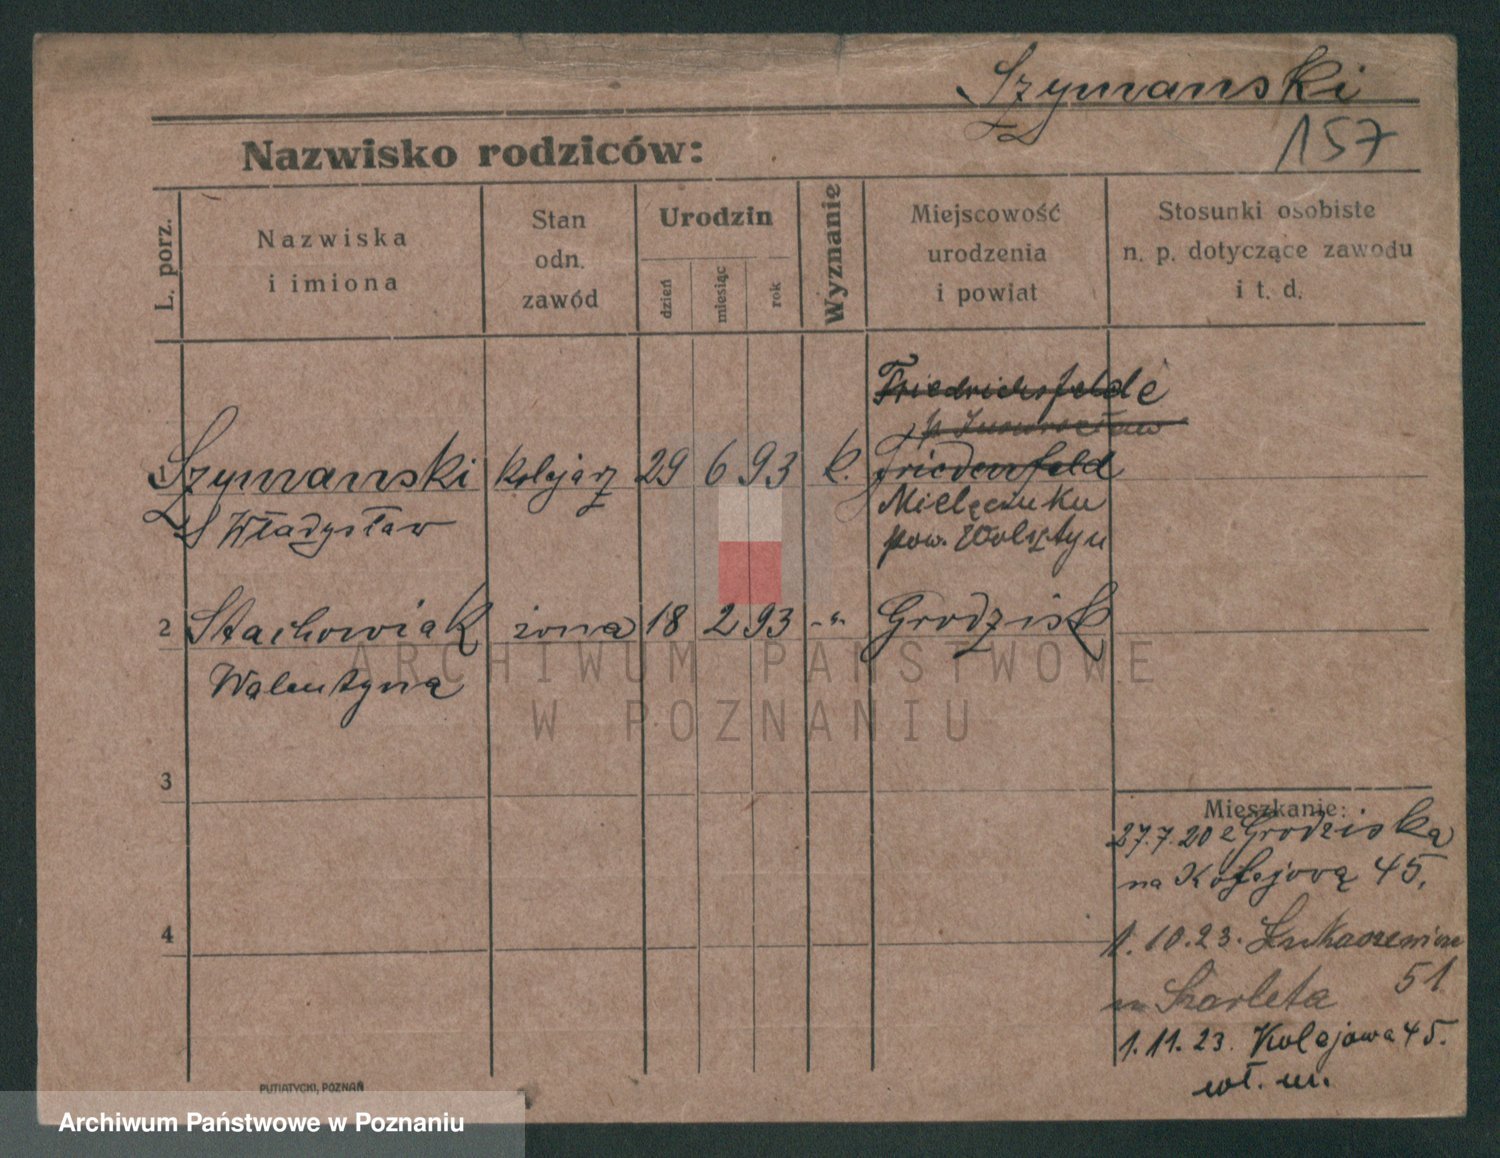 Szymanski
157
Nazwisko rodziców:
L. porz.
Nazwiska
i imiona
Stan
odn.
zawód
Urodzin
dzień
miesiąc
rok
Wyznanie
Miejscowość
urodzenia
i powiat
Stosunki osobiste
n. p. dotyczące zawodu
i t. d.
Friedrichsfelde
p Inowrocław
1 Szymanski kolejarz 29 6 93 k. Friedenfeld
Władysław
Mielęcinku
pow. Wolsztyn
2 Stachowiak żona 18 2 93 -"- Grodzisk
Walentyna
ARCHIWUM PAŃSTWOWE
W POZNANIU
3
Mieszkanie:
27.7.20 z Grodziska
na Kolejową 45.
4
1.10.23. Łukaszewicza
51
u Skarleta
1.11.23. Kolejowa 45.
wł. m.
PUTIATYCKI, POZNAŃ
Archiwum Państwowe w Poznaniu